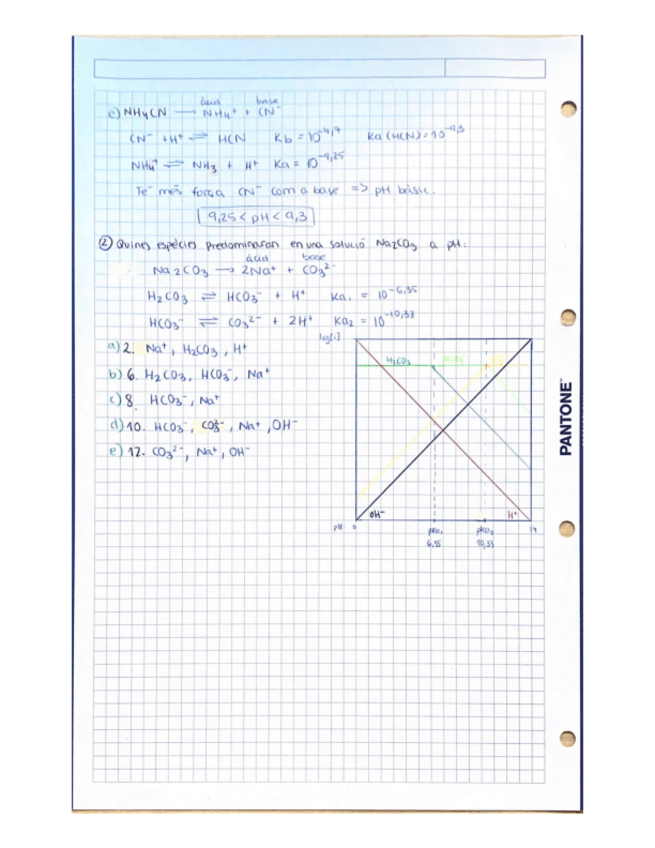 c) NH₄CN ⟶ NH₄⁺ + CN⁻
àcid base
CN⁻ + H⁺ ⇌ HCN Kb = 10⁻⁴'⁷ Ka (HCN) = 10⁻⁹'³
NH₄⁺ ⇌ NH₃ + H⁺ Ka = 10⁻⁹'²⁵
Té més força CN⁻ com a base => pH bàsic.
9,25 < pH < 9,3
② Quines espècies predominaran en una solució Na₂CO₃ a pH:
àcid base
Na₂CO₃ ⟶ 2Na⁺ + CO₃²⁻
H₂CO₃ ⇌ HCO₃⁻ + H⁺ Ka₁ = 10⁻⁶'³⁵
HCO₃⁻ ⇌ CO₃²⁻ + 2H⁺ Ka₂ = 10⁻¹⁰'³³
a) 2. Na⁺, H₂CO₃, H⁺
b) 6. H₂CO₃, HCO₃⁻, Na⁺
c) 8. HCO₃⁻, Na⁺
d) 10. HCO₃⁻, CO₃²⁻, Na⁺, OH⁻
e) 12. CO₃²⁻, Na⁺, OH⁻
log[i]
H₂CO₃
OH⁻ H⁺
pH 0 pKa₁ pKa₂ 14
6,35 10,33
PANTONE